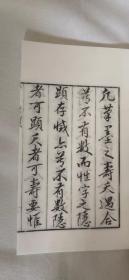 凡筆墨之壽夭遇合
莫不有數而姓字之隱
顯存滅亦莫不有數隱
者可顯夭者可壽要惟